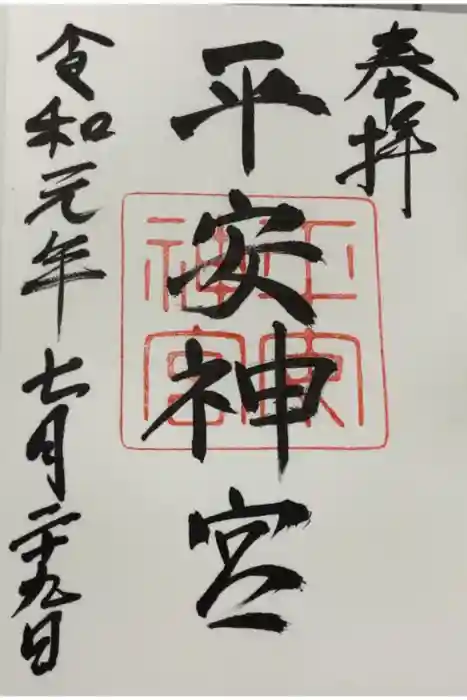 奉拝
平安神宮
令和元年七月二十九日